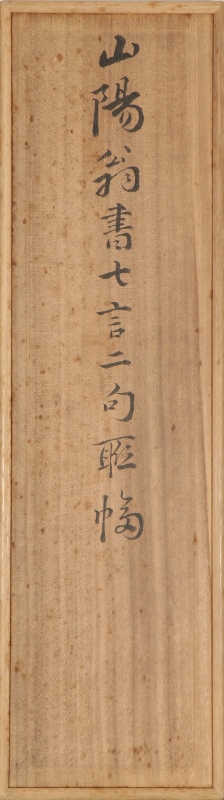 山陽翁書七言二句聯幅